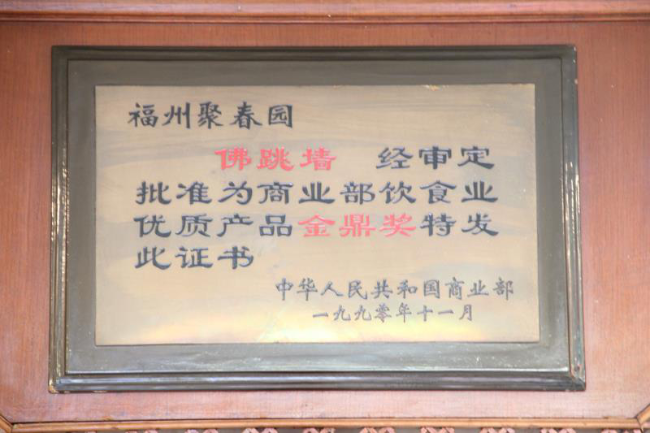 福州聚春园
佛跳墙 经审定
批准为商业部饮食业
优质产品金鼎奖特发
此证书
中华人民共和国商业部
一九九零年十一月